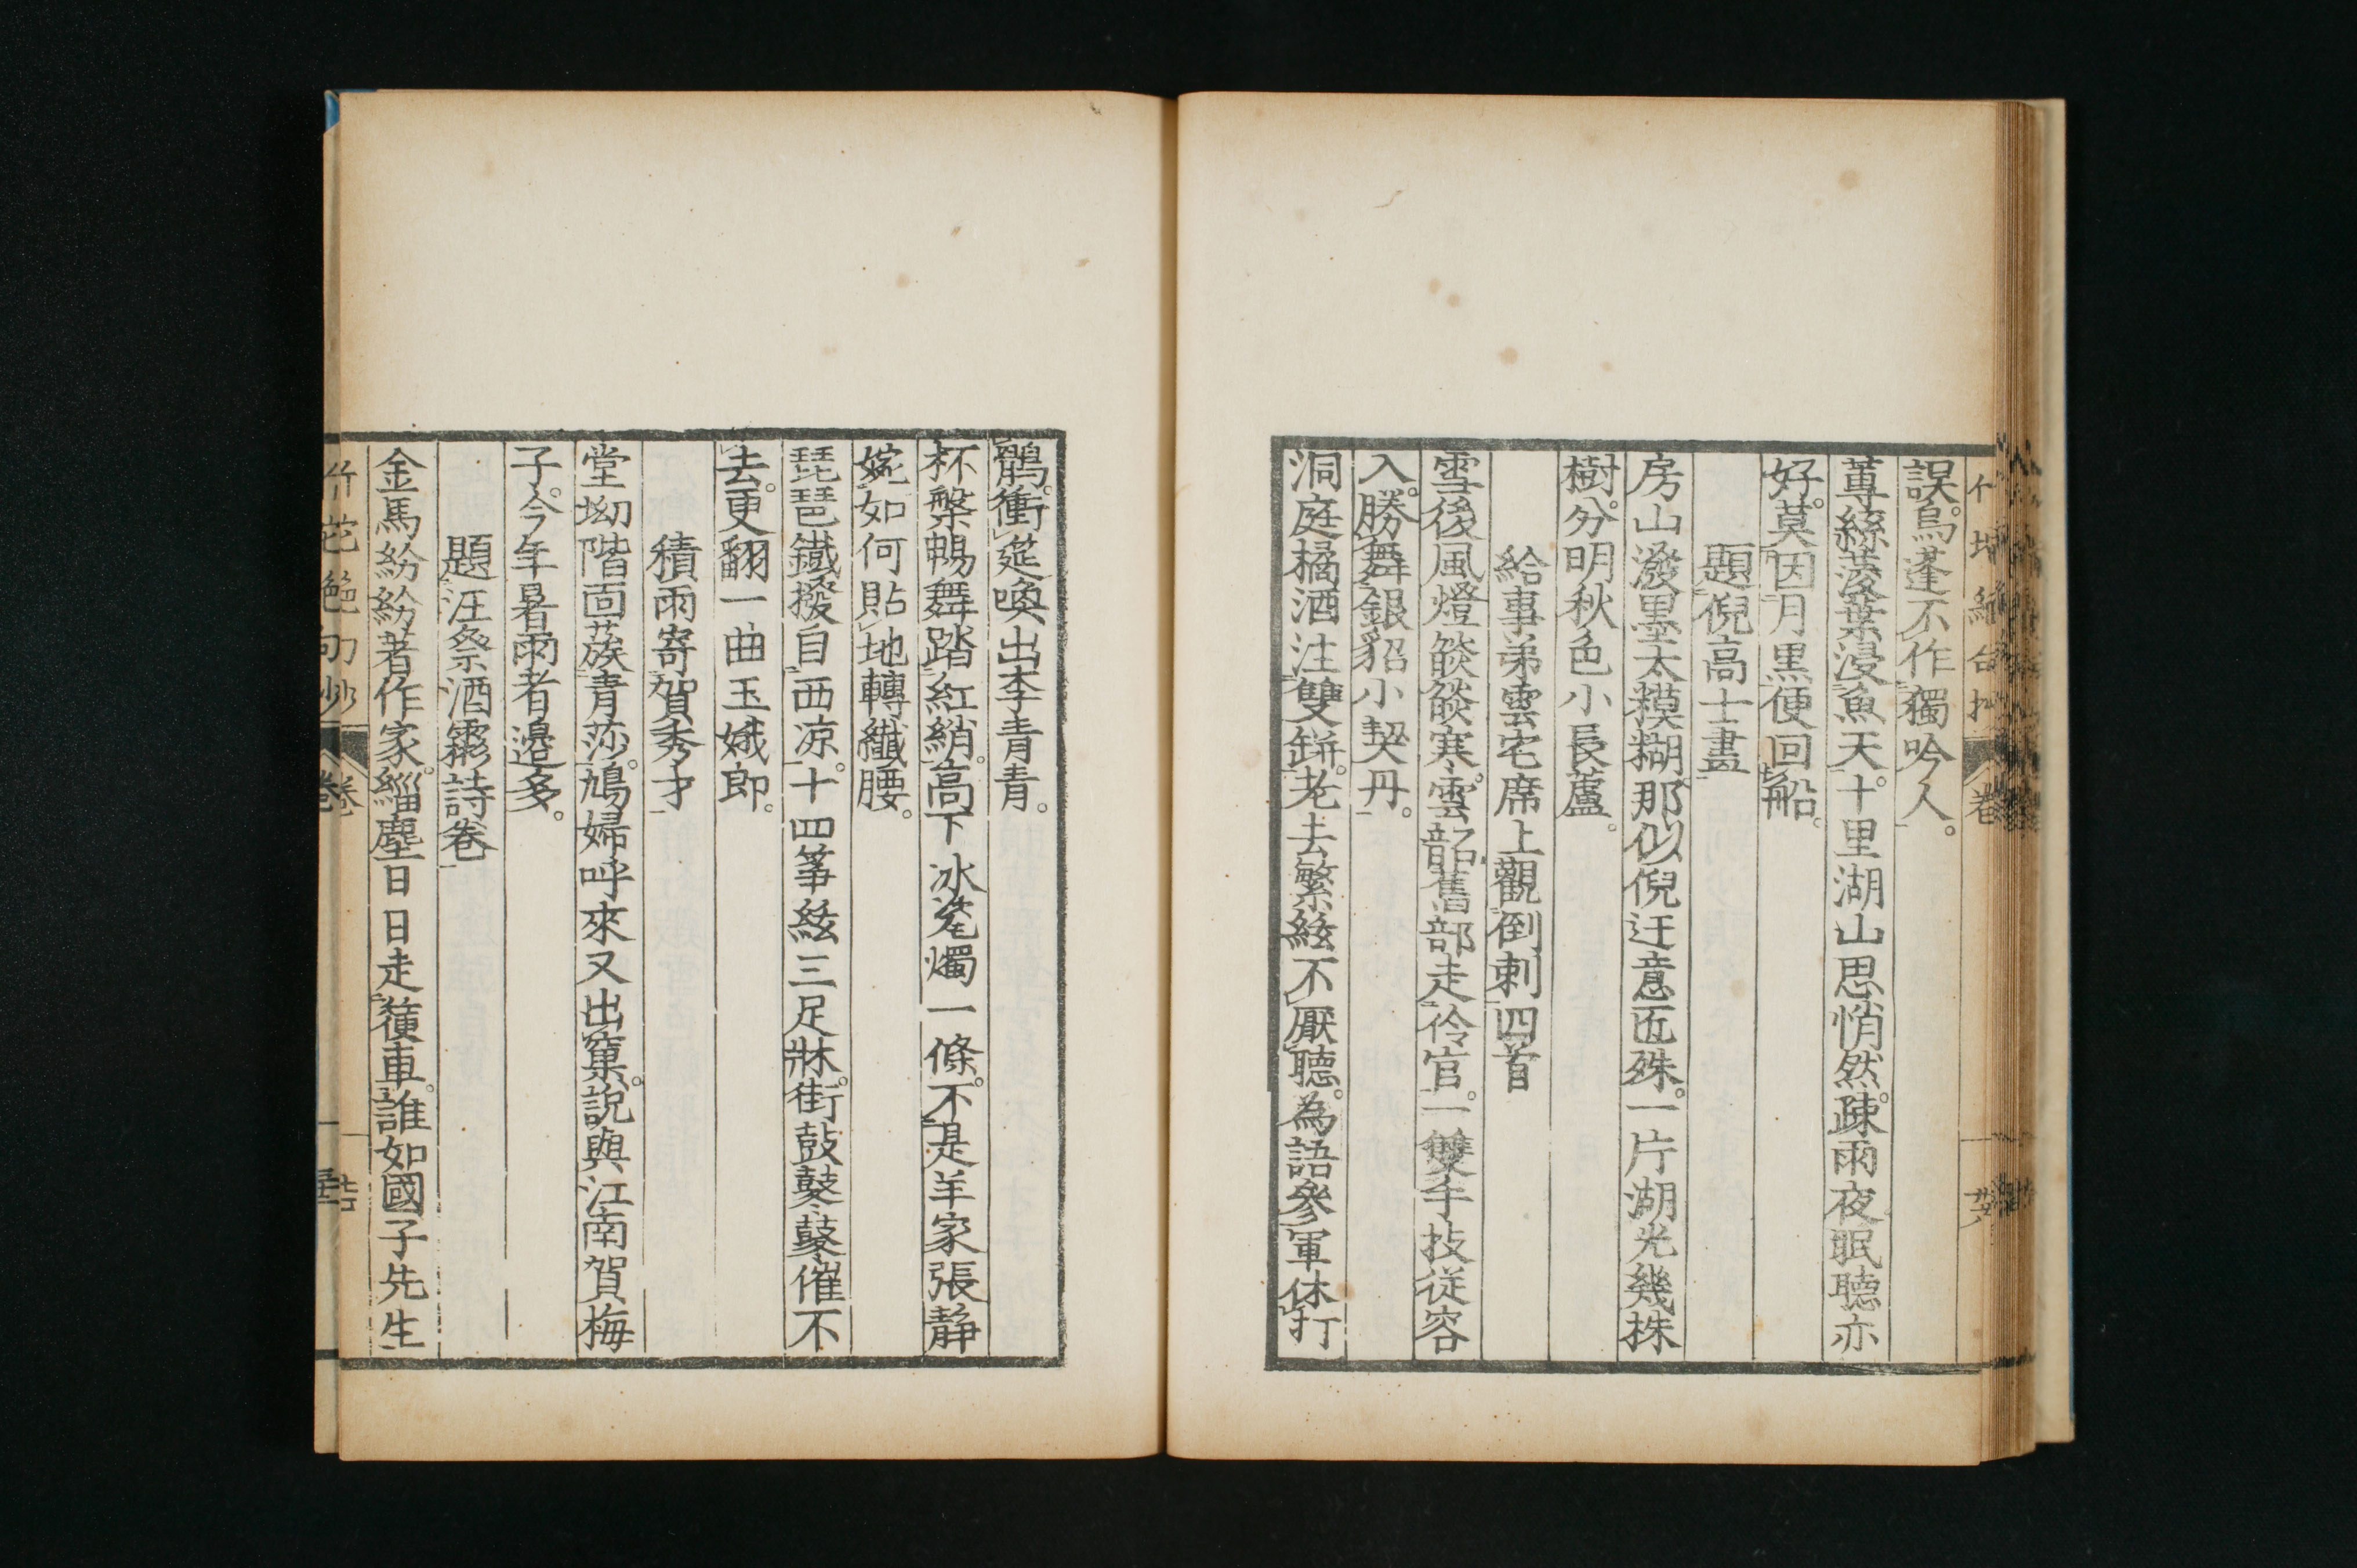 誤。烏蓬不作獨吟人。
蓴絲菱葉浸魚天。十里湖山思悄然。疎雨夜眠聽亦
好。莫因月黒便回船。
題倪高士畫
房山潑墨太糢糊。那似倪迂意匠殊。一片湖光幾株
樹。分明秋色小長蘆。
給事弟雲宅席上觀倒刺四首
雪後風燈餤餤寒。雲韶舊部走伶官。一雙手技従容
入。勝舞銀貂小契丹。
洞庭橘酒注雙缾。老去繁絃不厭聽。為語參軍休打
鶻。衝筵喚出李青青。
杯槃暢舞踏紅綃。高下冰瓷燭一條。不是羊家張静
婉。如何貼地轉纖腰。
琵琶鐵撥自西凉。十四筝絃三足牀。街鼓鼕鼕催不
去。更翻一曲玉娥郎。
積雨寄賀秀才
堂坳階面蔟青莎。鳩婦呼來又出窠。説與江南賀梅
子。今年暑雨者邉多。
題汪祭酒霦詩卷
金馬紛紛著作家。緇塵日日走獚車。誰如國子先生
竹垞絶句抄 卷